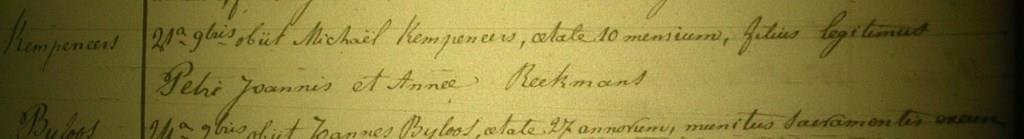 Kempeneers 21a 9bris obiit Michaël Kempeneers, ætate 10 mensium, filius legitimus
Petri Joannis et Annæ Reekmans
Byloos 24a 9bris obiit Joannes Byloos, ætate 27 annorum, munitus sacramentis